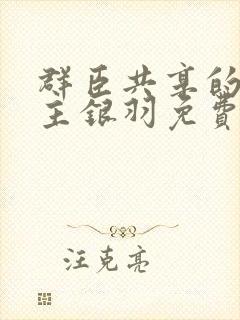 群臣共享的
主银羽免費
汪克亮